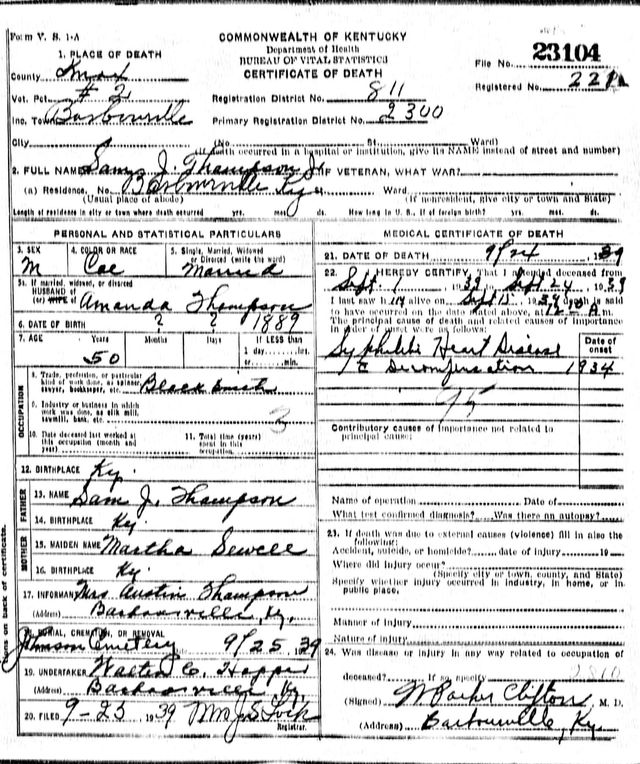 Form V. S. 1-A
COMMONWEALTH OF KENTUCKY
Department of Health
BUREAU OF VITAL STATISTICS
CERTIFICATE OF DEATH
File No. 23104
Registered No. 221
1. PLACE OF DEATH
County Knox
Vot. Pct. # 2
Inc. Town Barbourville
Registration District No. 811
Primary Registration District No. 2300
City (No. St. Ward)
(If death occurred in a hospital or institution, give its NAME instead of street and number)
2. FULL NAME Sam J. Thompson Jr IF VETERAN, WHAT WAR?
(a) Residence. No. Barbourville Ky Ward
(Usual place of abode) (If nonresident, give city or town and State)
Length of residence in city or town where death occurred yrs. mos. ds. How long in U. S., if of foreign birth? yrs. mos. ds.
PERSONAL AND STATISTICAL PARTICULARS
3. SEX M
4. COLOR OR RACE Col
5. Single, Married, Widowed or Divorced (write the word) Married
5a. If married, widowed, or divorced
HUSBAND of (or) WIFE of Amanda Thompson
6. DATE OF BIRTH ? ? 1889
7. AGE Years Months Days If LESS than
50 1 day hrs. or min.
OCCUPATION
8. Trade, profession, or particular kind of work done, as spinner, sawyer, bookkeeper, etc. Black Smith
9. Industry or business in which work was done, as silk mill, sawmill, bank, etc. 3
10. Date deceased last worked at this occupation (month and year)
11. Total time (years) spent in this occupation
12. BIRTHPLACE Ky.
FATHER
13. NAME Sam J. Thompson
14. BIRTHPLACE Ky.
MOTHER
15. MAIDEN NAME Martha Sewell
16. BIRTHPLACE Ky.
17. INFORMANT Mrs Austin Thompson
(Address) Barbourville, Ky,
18. BURIAL, CREMATION, OR REMOVAL
Cemetery 9/25 39
19. UNDERTAKER Walter C. Hopper
(Address) Barbourville Ky.
20. FILED 9-25 1939 Mrs J. S. Lock
Registrar.
MEDICAL CERTIFICATE OF DEATH
21. DATE OF DEATH 9/24 1939
22. I HEREBY CERTIFY, That I attended deceased from
Sept. 1 1939 to Sept 24 1939
I last saw h im alive on Sept 15 1939 death is said
to have occurred on the date stated above, at 12- A m.
The principal cause of death and related causes of importance
in order of onset were as follows: Date of onset
Syphilitic Heart Disease
Decompensation 1934
95
Contributory causes of importance not related to
principal cause:
Name of operation Date of
What test confirmed diagnosis? Was there an autopsy?
23. If death was due to external causes (violence) fill in also the
following:
Accident, suicide, or homicide? date of injury 19
Where did injury occur?
(Specify city or town, county, and State)
Specify whether injury occurred in industry, in home, or in
public place.
Manner of injury
Nature of injury
24. Was disease or injury in any way related to occupation of
deceased? If so, specify
(Signed) W Parker Clifton, M. D.
(Address) Barbourville, Ky.